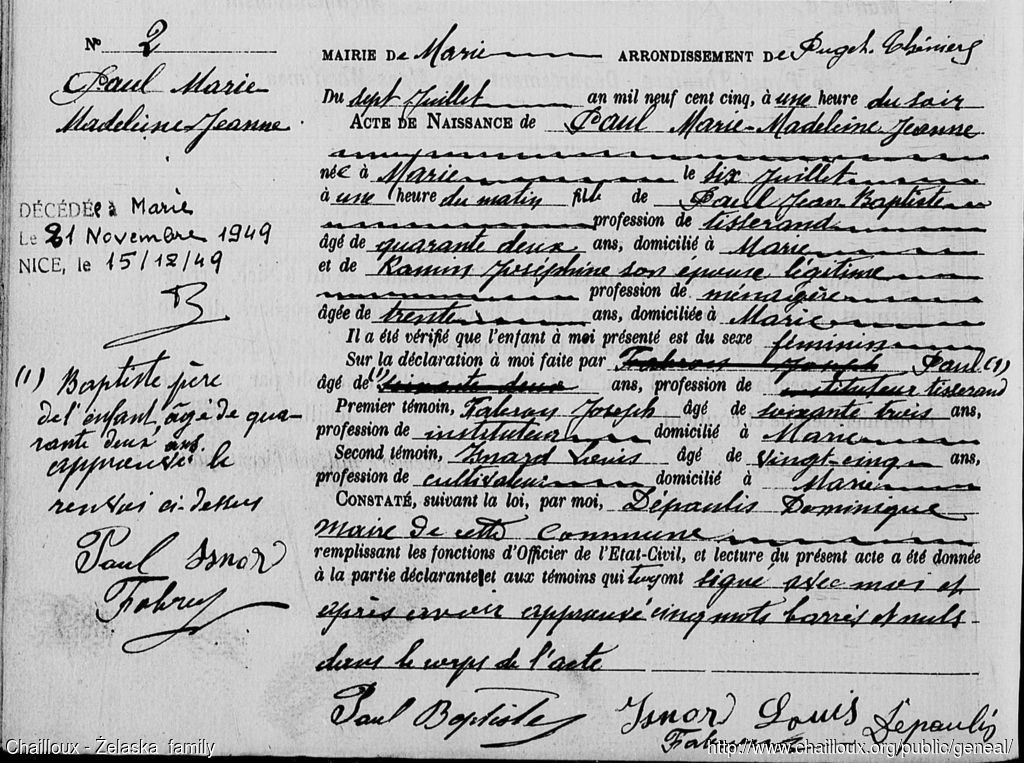 N° 2
Paul Marie
Madeleine Jeanne
DÉCÉDÉe à Marie
Le 21 Novembre 1949
NICE, le 15/12/49
(1) Baptiste père
de l'enfant, âgé de qua-
rante deux ans
approuvés le
renvoi ci-dessus
Paul Isnard
Fabroy
MAIRIE De Marie ARRONDISSEMENT De Puget-Théniers
Du sept Juillet an mil neuf cent cinq, à une heure du soir
ACTE DE NAISSANCE de Paul Marie-Madeleine Jeanne
née à Marie le six Juillet
à une heure du matin fille de Paul Jean Baptiste
profession de tisserand
âgé de quarante deux ans, domicilié à Marie
et de Ramin Joséphine son épouse légitime
profession de ménagère
âgée de trente ans, domiciliée à Marie
Il a été vérifié que l'enfant à moi présenté est du sexe féminin
Sur la déclaration à moi faite par Fabroy Joseph Paul (1)
âgé de (1) soixante deux ans, profession de instituteur tisserand
Premier témoin, Fabroy Joseph âgé de soixante trois ans,
profession de instituteur domicilié à Marie
Second témoin, Isnard Louis âgé de vingt-cinq ans,
profession de cultivateur domicilié à Marie
CONSTATÉ, suivant la loi, par moi, Dépaulis Dominique
Maire de cette Commune
remplissant les fonctions d'Officier de l'Etat-Civil, et lecture du présent acte a été donnée
à la partie déclarante et aux témoins qui ont signé avec moi et
après avoir approuvé cinq mots barrés et nuls
dans le corps de l'acte
Paul Baptiste Isnard Louis Dépaulis
Fabroy
Chailloux - Żelaska family
http://www.chailloux.org/public/geneal/